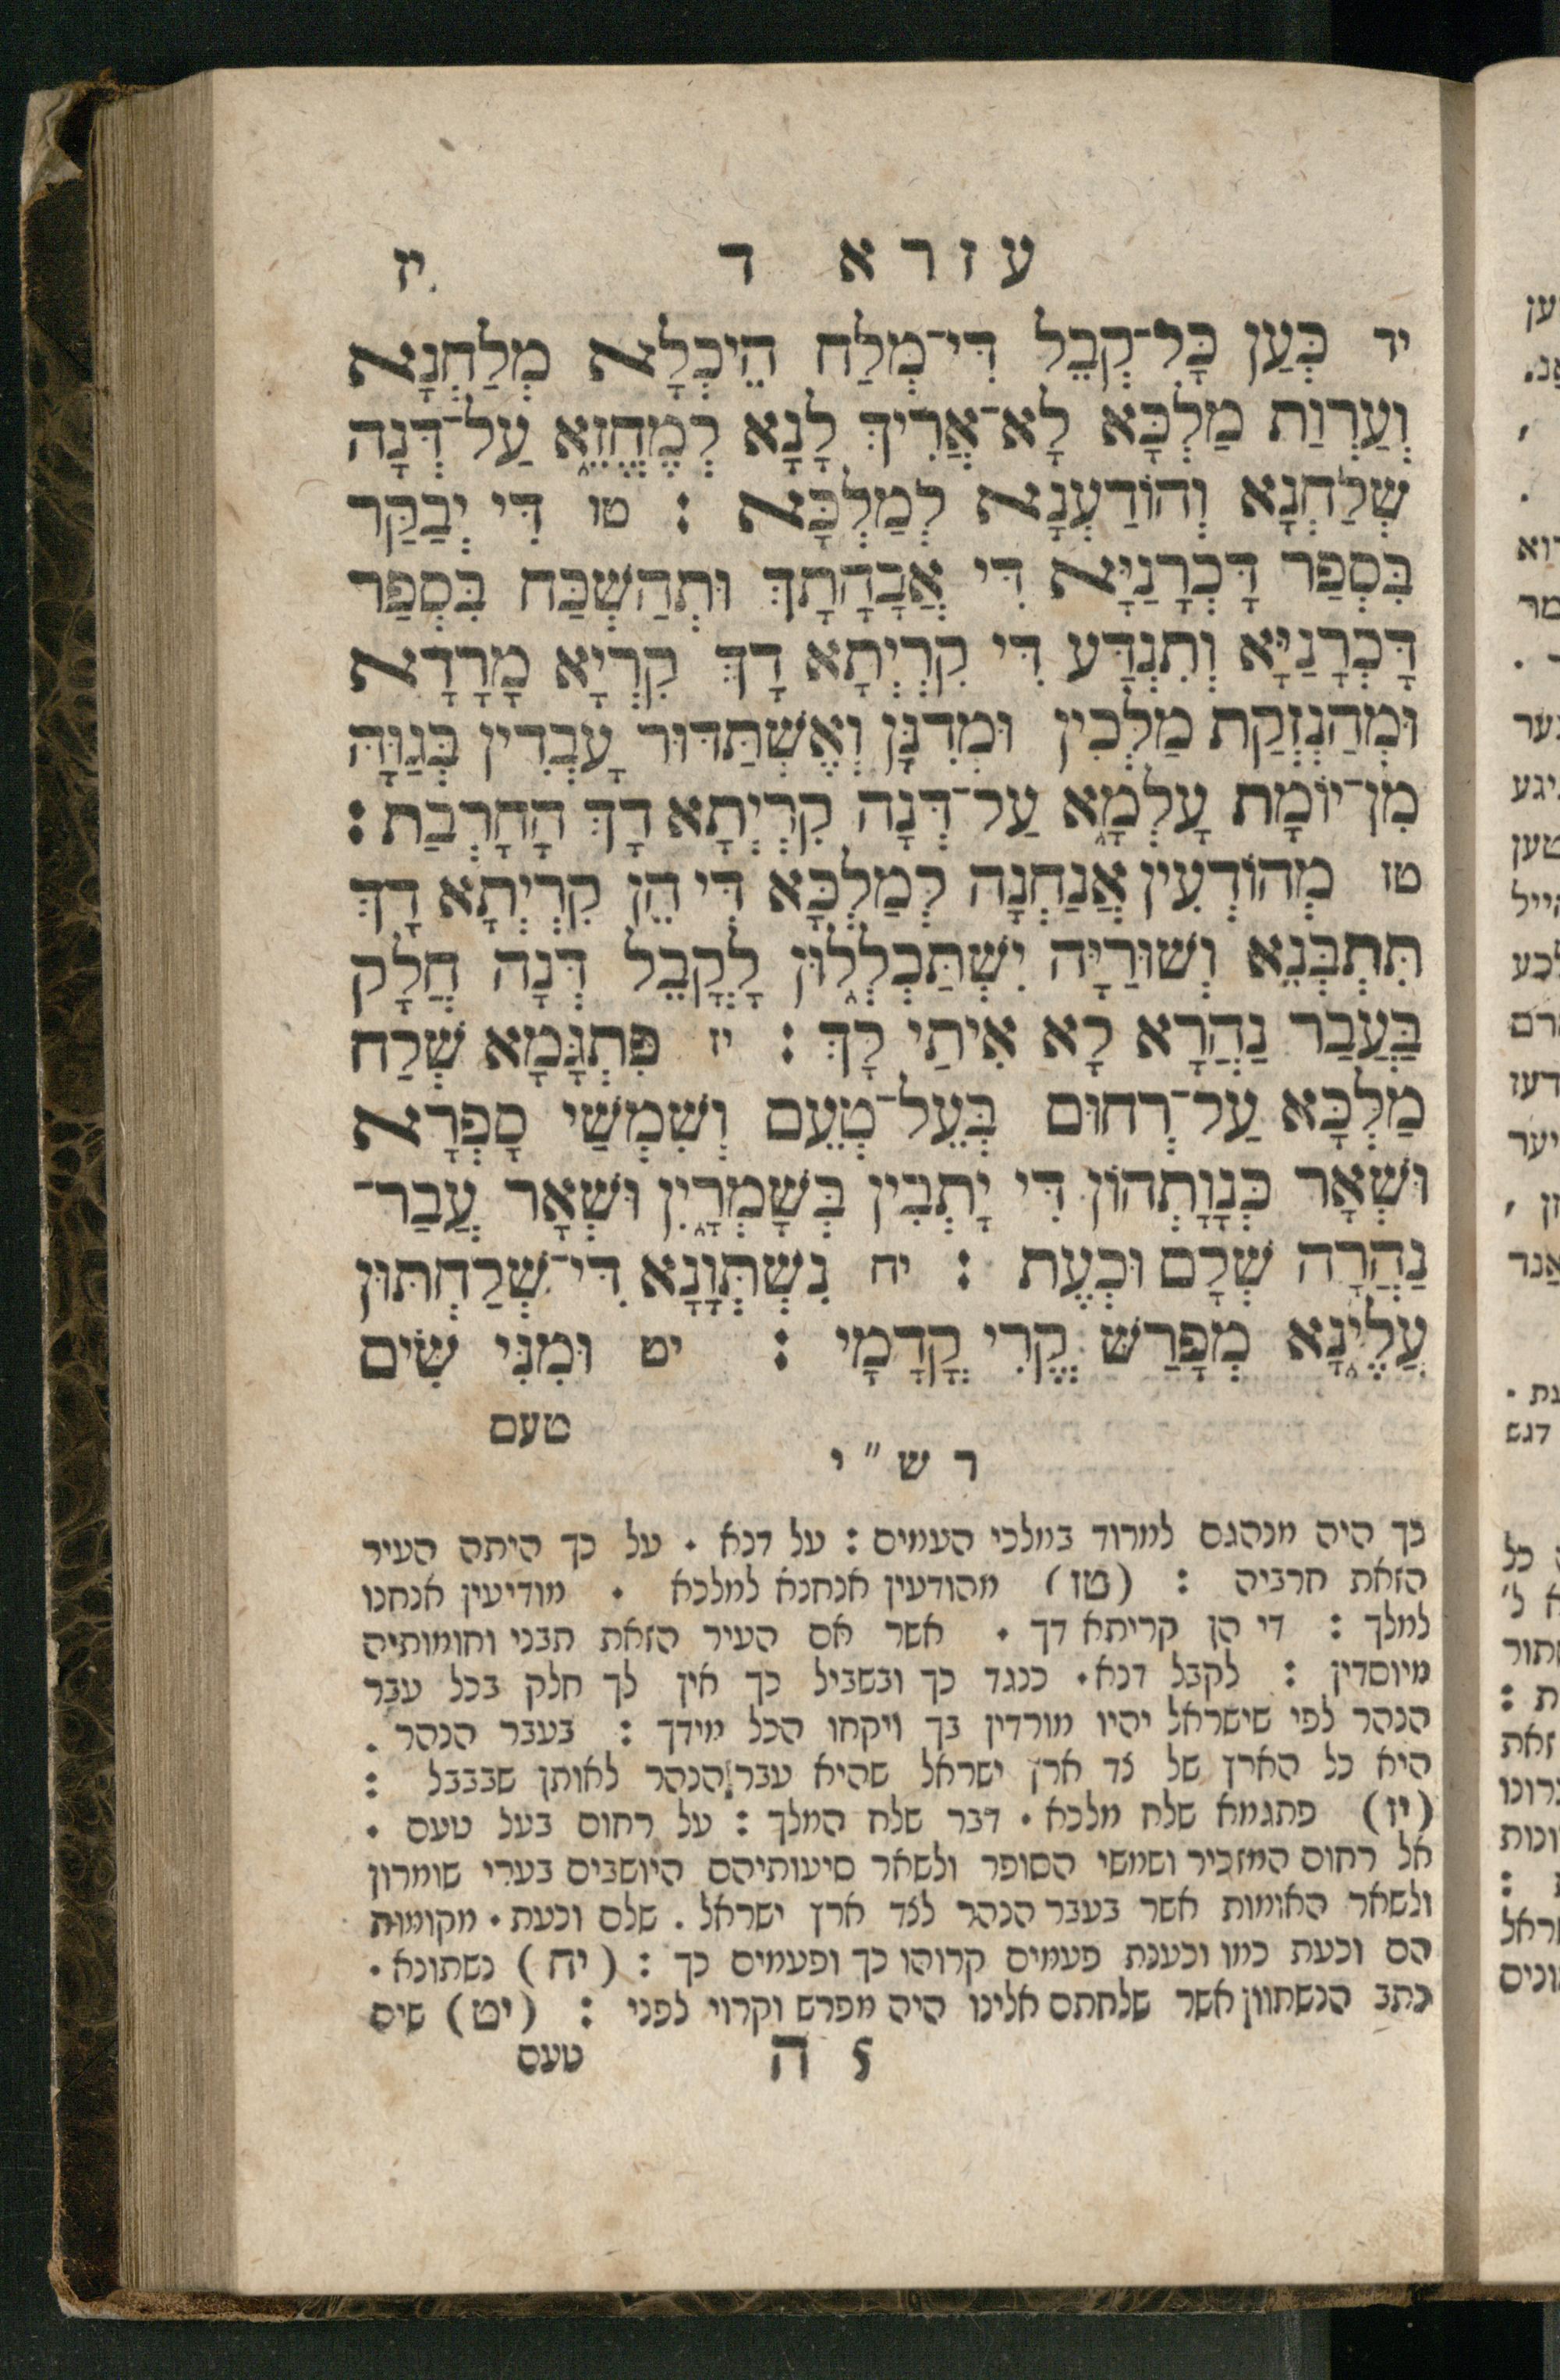 עזרא ד יז
יד כְּעַן כָּל־קֳבֵל דִּי־מְלַח הֵיכְלָא מְלַחְנָא
וְעַרְוַת מַלְכָּא לָא־אֲרִיךְ לָנָא לְמֶחֱזֵא עַל־דְּנָה
שְׁלַחְנָא וְהוֹדַעְנָא לְמַלְכָּא : טו דִּי יְבַקַּר
בִּסְפַר דָּכְרָנַיָּא דִּי אֲבָהָתָךְ וּתְהַשְׁכַּח בִּסְפַר
דָּכְרָנַיָּא וְתִנְדַּע דִּי קִרְיְתָא דָךְ קִרְיָא מָרָדָא
וּמְהַנְזְקַת מַלְכִין וּמְדִנָן וְאֶשְׁתַּדּוּר עָבְדִין בְּגַוַּהּ
מִן־יוֹמָת עָלְמָא עַל־דְּנָה קִרְיְתָא דָךְ הָחָרְבַת :
טז מְהוֹדְעִין אֲנַחְנָה לְמַלְכָּא דִּי הֵן קִרְיְתָא דָךְ
תִּתְבְּנֵא וְשׁוּרַיָּה יִשְׁתַּכְלְלוּן לָקֳבֵל דְּנָה חֲלָק
בַּעֲבַר נַהֲרָא לָא אִיתַי לָךְ : יז פִּתְגָּמָא שְׁלַח
מַלְכָּא עַל־רְחוּם בְּעֵל־טְעֵם וְשִׁמְשַׁי סָפְרָא
וּשְׁאָר כְּנָוָתְהוֹן דִּי יָתְבִין בְּשָׁמְרָיִן וּשְׁאָר עֲבַר־
נַהֲרָה שְׁלָם וּכְעֶת : יח נִשְׁתְּוָנָא דִּי־שְׁלַחְתּוּן
עֲלֶינָא מְפָרַשׁ קֱרִי קָדָמָי : יט וּמִנִּי שִׂים
טעם
רש"י
כך היה מנהגם למרוד במלכי העמים : על דנא . על כך היתה העיר
הזאת חרביה : (טז) מהודעין אנחנא למלכא . מודיעין אנחנו
למלך : די הן קריתא דך . אשר אם העיר הזאת תבני וחומותיה
מיוסדין : לקבל דנא . כנגד כך ובשביל כך אין לך חלק בכל עבר
הנהר לפי שישראל יהיו מורדין בך ויקחו הכל מידך : בעבר הנהר .
היא כל הארץ של צד ארץ ישראל שהיא עבר הנהר לאותן שבבבל :
(יז) פתגמא שלח מלכא . דבר שלח המלך : על רחום בעל טעם .
אל רחום המזכיר ושמשי הסופר ולשאר סיעותיהם היושבים בערי שומרון
ולשאר האומות אשר בעבר הנהר לצד ארץ ישראל . שלם וכעת . מקומות
הם וכעת כמו וכענת פעמים קרוהו כך ופעמים כך : (יח) נשתונא .
כתב הנשתוון אשר שלחתם אלינו היה מפרש וקרוי לפני : (יט) שים
5 ה טעם